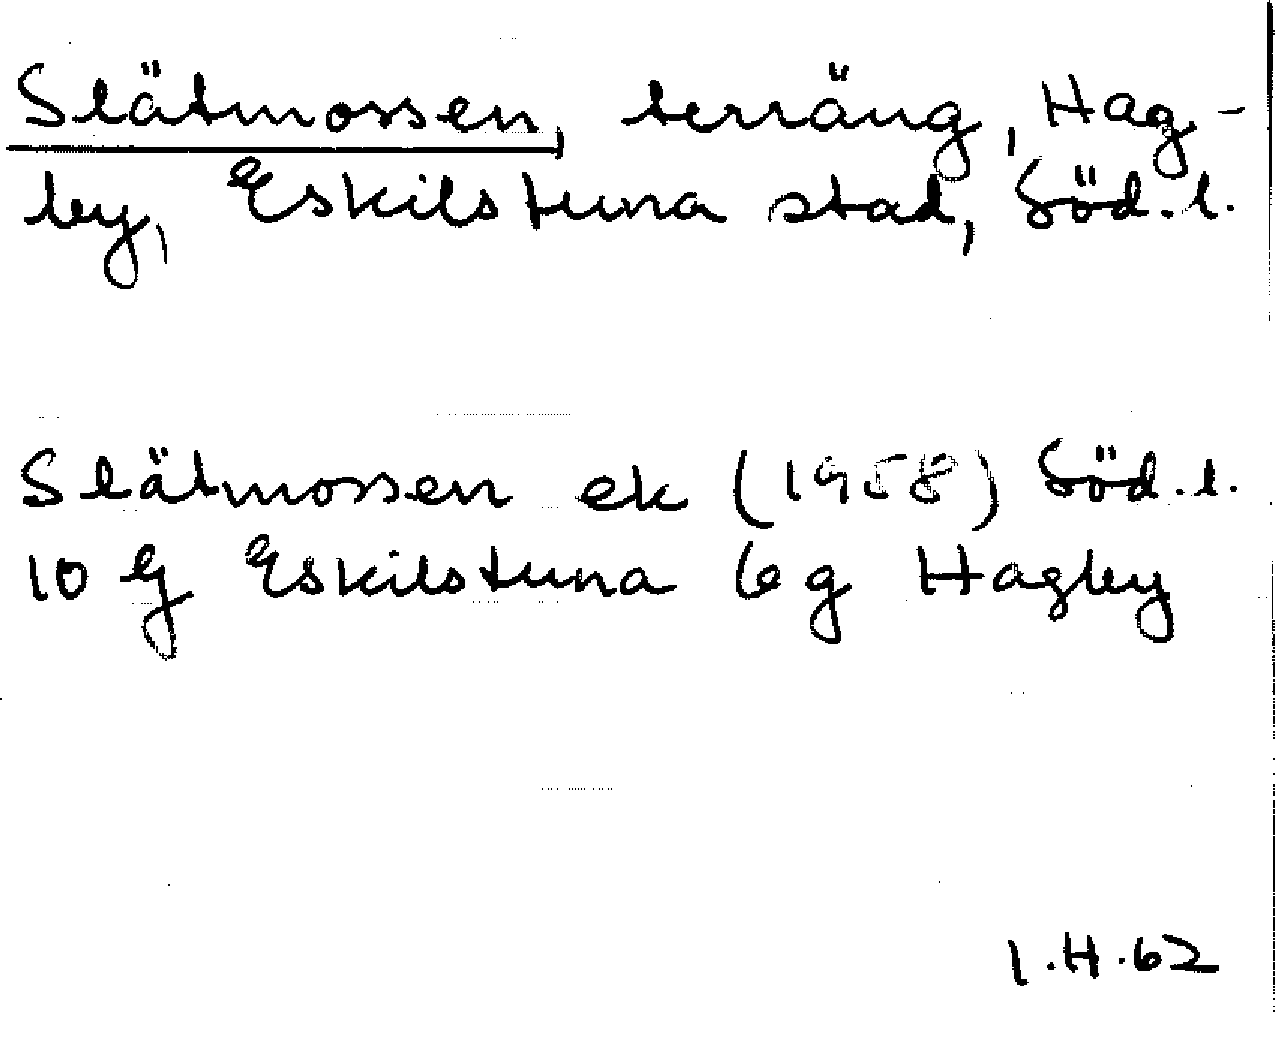 Slätmossen, terräng, Hag-
by, Eskilstuna stad, Söd.l.
Slätmossen ek (1958) Söd.l.
10 G Eskilstuna 6 g Hagby
I.H.62